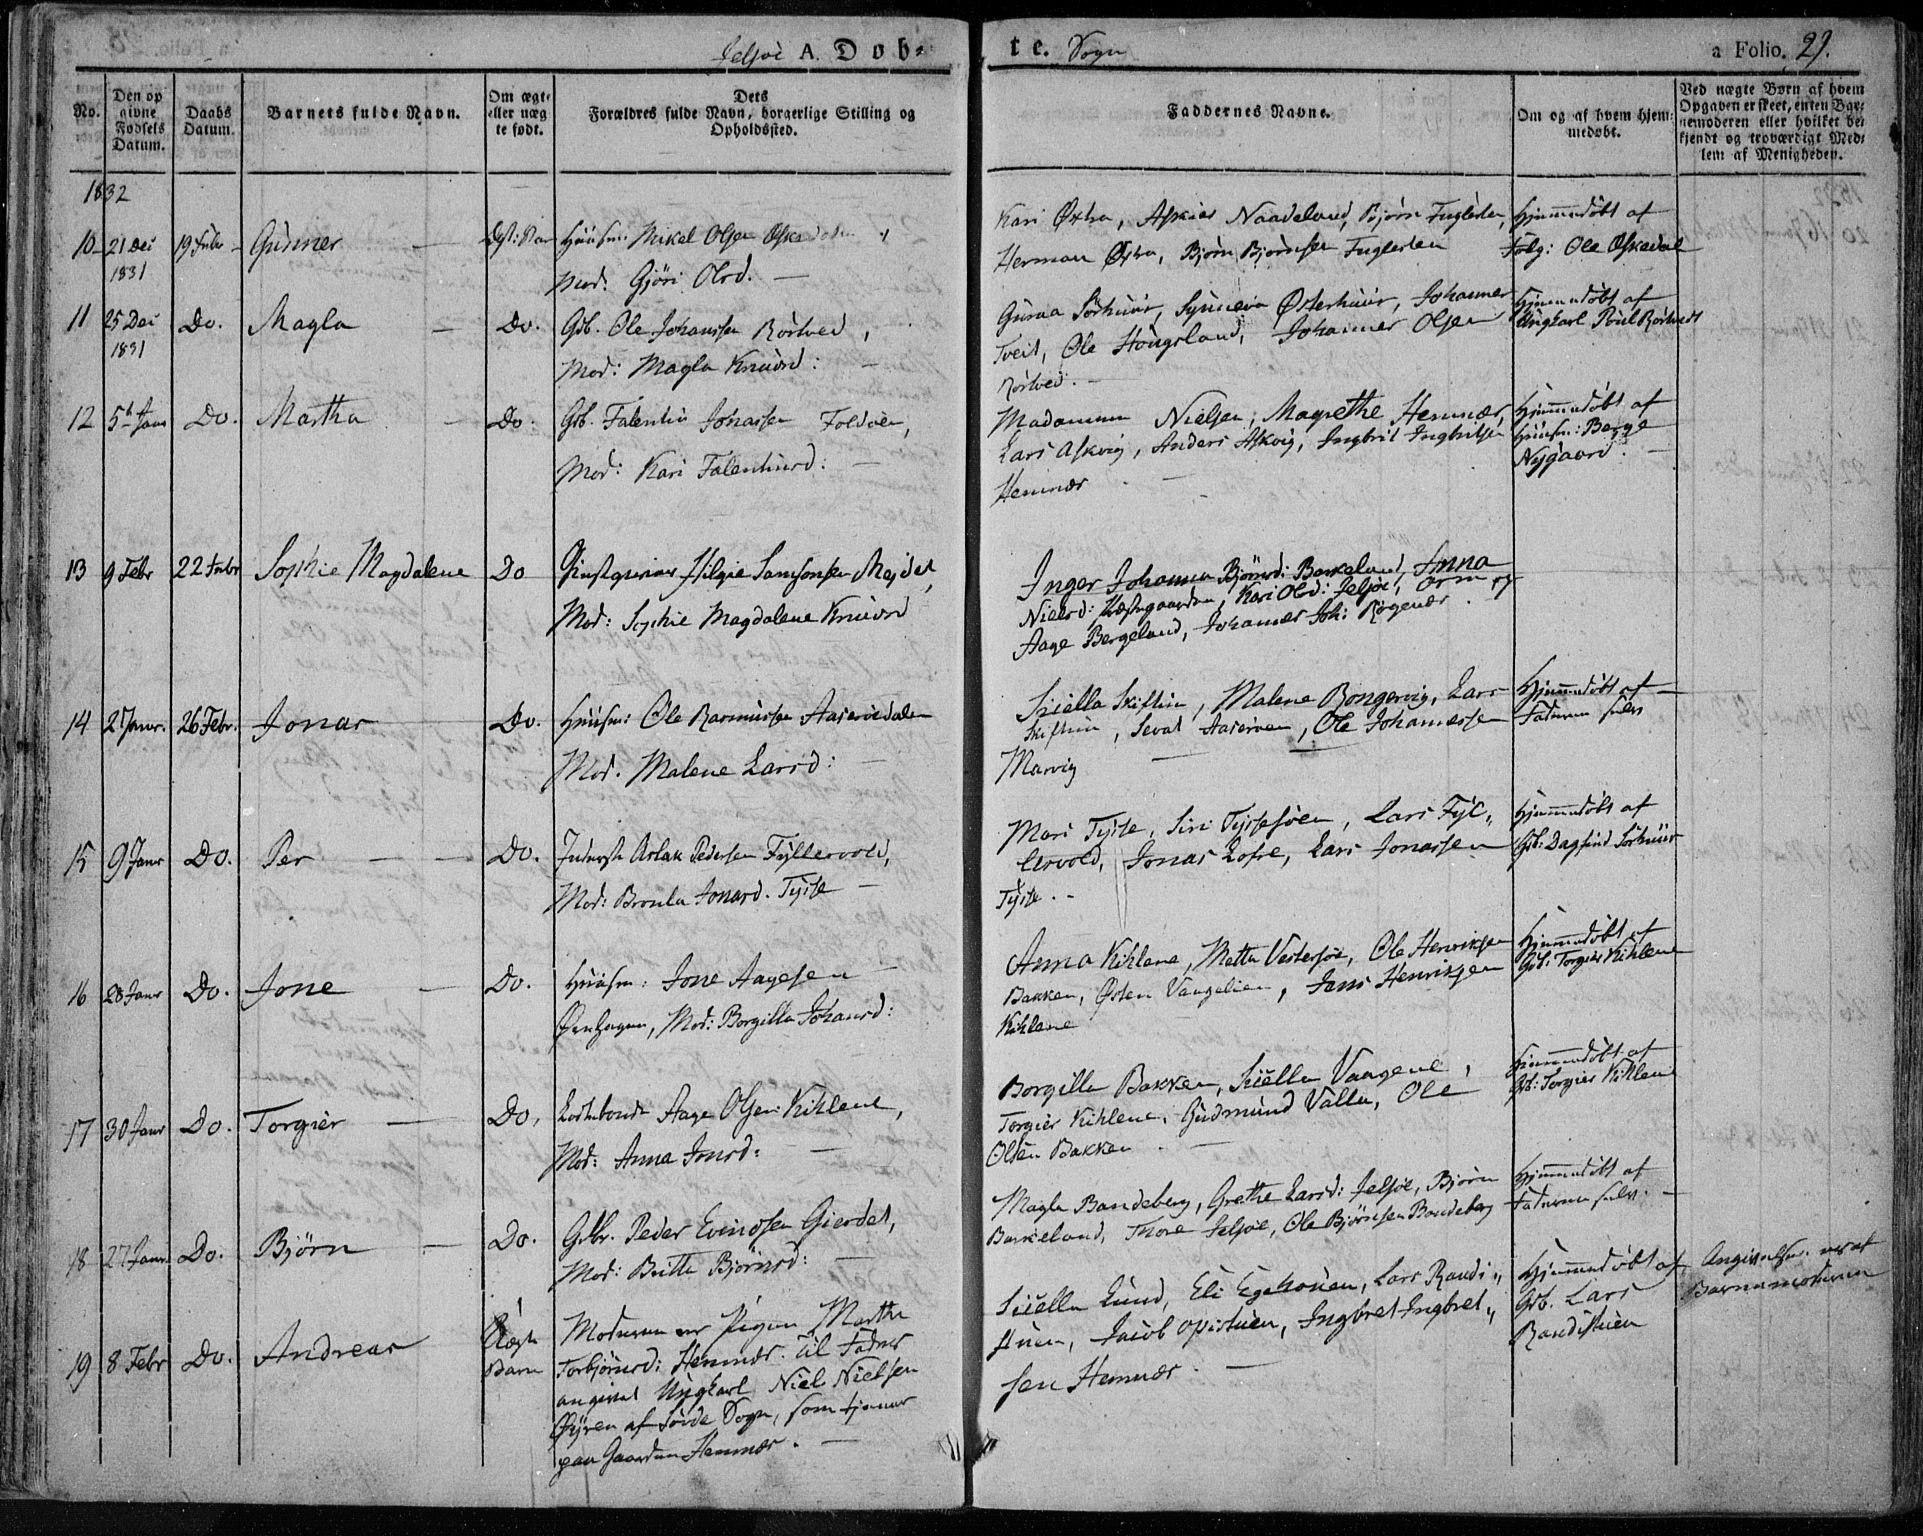 Jelsøe A. Døb-
te. Sogn
a Folio. 29.
No.
Den op
givne
Fødsels
Datum.
Daabs
Datum.
Barnets fulde Navn.
Om ægte
eller uæg
te født.
Dets
Forældres fulde Navn, borgerlige Stilling og
Opholdssted.
Faddernes Navne.
Om og af hvem hjem-
medøbt.
Ved uægte Børn af hvem
Opgaven er skeet, enten Bar-
nemoderen eller hvilket be-
kjendt og troværdigt Med-
lem af Menigheden.
1832
10 21 Dec 1831 19 Febr Gunner
Huusm: Mikel Olsen
Mod: Gjøri Olsd.
Kari Østra, Askier Naadeland, Bjørn
Herman Østra, Bjørn Bjørnsen
Hjemmedøbt af
Ole Oskedal
11 25 Dec 1831 Do. Magla Do.
Gdb. Ole Johanssen Rørtved,
Mod: Magla Knudsd:
Gunna Sørhuus, Synneva Østerhuus, Johannes
Tveit, Ole Hougsland, Johannes Olsen
Rørtved.
Hjemmedøbt af
Ungkarl Poul Rørtvedt
12 5t Janr Do. Martha Do.
Gdb. Falentin Jonassen Foldøen,
Mod: Kari Falentinsd:
Madamme Nielsen, Magrethe Hemnær,
Lars Askvig, Anders Askvig, Ingbrit Ingbritsen
Hemnær
Hjemmedøbt af
Huusm: Berge
Nygaard.
13 9 Febr 22 Febr Sophie Magdalene Do
Hilgie Samsonsen Mejdel,
Mod: Sophie Magdalene Knudsd
Inger Johanna Bjørnsd: Barkeland, Anna
Nielsd: Præstegaarden, Kari Olsd: Jelsøe, Orm og
Aage Bergeland, Johannes Joh:
14 2 Janr. 26 Febr. Jonas Do.
Huusm: Ole Rasmussen
Mod. Malene Larsd:
Siiella Skiftun, Malene Bongervig, Lars
Skiftun, Sevat, Ole Johannessen
Marvig
Hjemmedøbt af
Faderen selv
15 9 Janr Do. Per Do.
Inderste Aslak Pedersen Fyllesvold,
Mod: Bronla Jonasd. Tysse
Mari Tysse, Siri Tyssesøen, Lars Fyl-
lesvold, Jonas Lofse, Lars Jonassen
Tysse.
Hjemmedøbt af
Gdb: Dagfind Sørhuus
16 28 Janr Do. Jone Do.
Huusm: Jone Aagesen
Mod: Borgilla Johansd:
Anna Kihlene, Metta Vestersøe, Ole Henriksen
Bakken, Østen Vaagelien, Jens Henriksen
Kihlene
Hjemmedøbt af
Gdb: Torgier Kihlene
17 30 Janr Do. Torgier Do,
Aage Olsen Kihlene,
Mod: Anna Jonsd:
Borgilla Bakken, Siiella Vaagene,
Torgier Kihlene, Gudmund Valla, Ole
Olsen Bakken
Hjemmedøbt af
Gb: Torgier Kihlene
18 27 Janr. Do. Bjørn Do.
Gdbr. Peder Evindsen Gierdet,
Mod: Britta Bjørnsd:
Magla Bandeberg, Grethe Larsd: Jelsøe, Bjørn
Barkeland, Thore Jelsøe, Ole Bjørnsen Bandeberg
Hjemmedøbt af
Faderen selv.
19 8 Febr Do. Andreas
Uægte
Barn
Moderen er Pigen Martha
Torbjørnsd: Hemnær. Til Fader
angivet Ungkarl Niels Nielsen
Øyren af Søvde Sogn, som tjener
paa Gaarden Hemnær.
Siiella Lund, Eli Egehouen, Lars Randi-
stuen, Jacob Opistuen, Ingbret Ingbret-
sen Hemnær.
Hjemmedøbt af
Gdb. Lars
Randistuen
Angivelsen er af
Barnemoderen